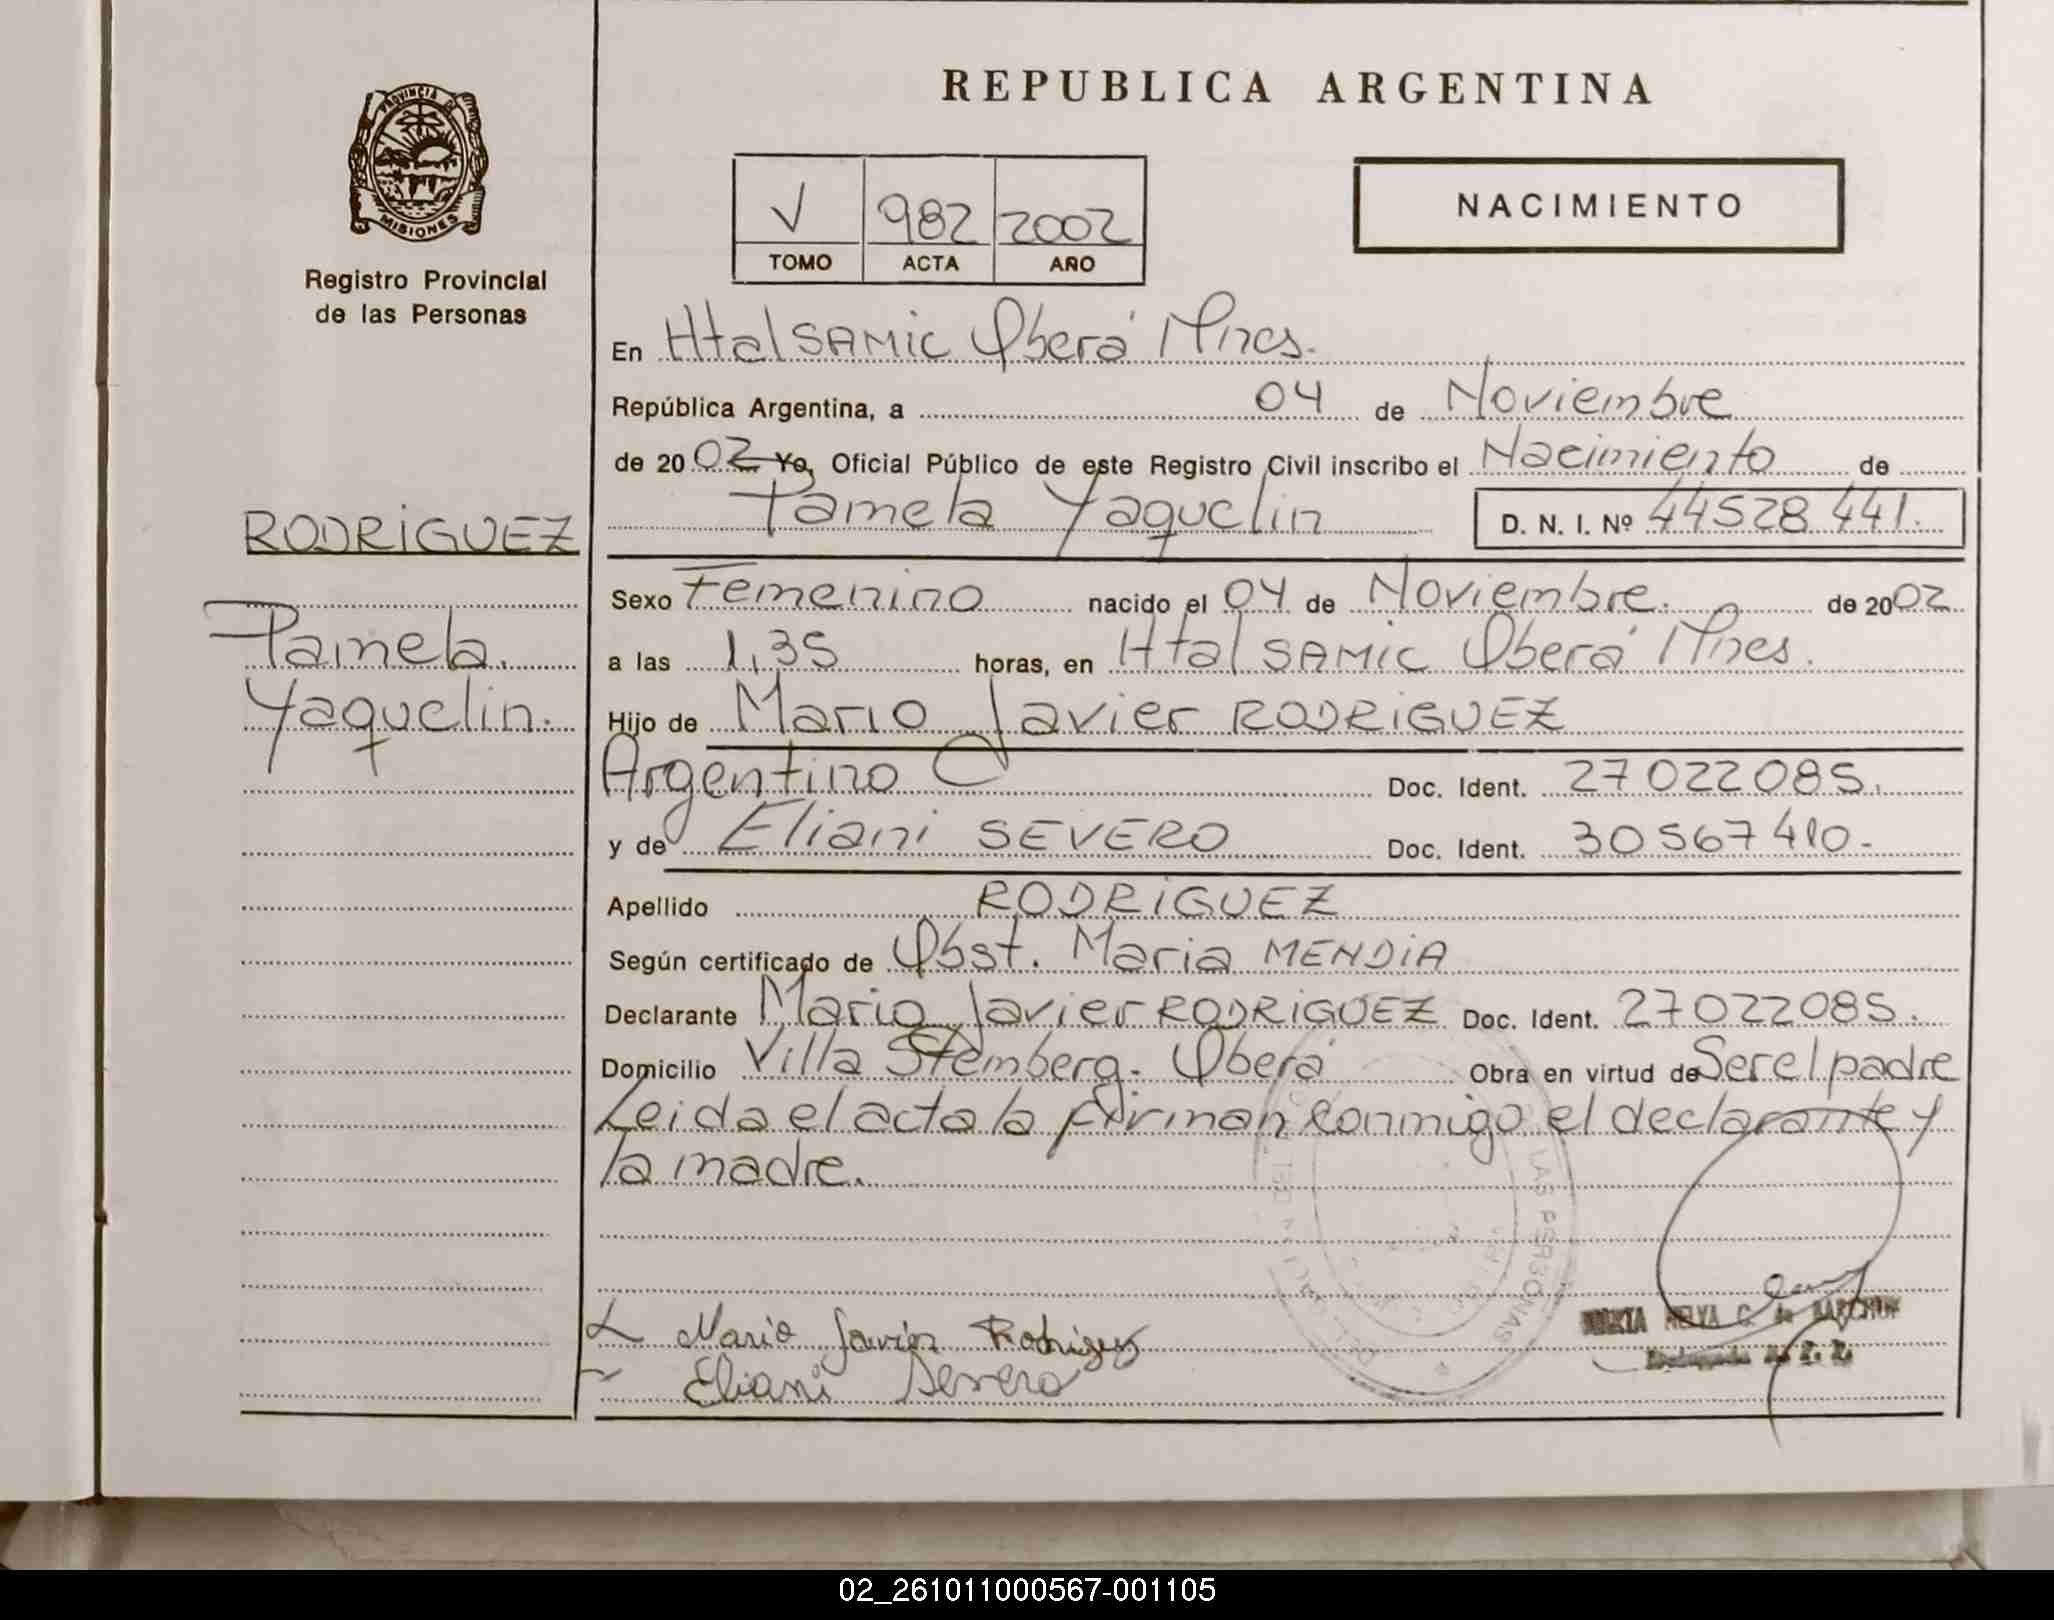 REPUBLICA ARGENTINA
PROVINCIA DE
MISIONES
Registro Provincial
de las Personas
V 982 2002
TOMO ACTA AÑO
NACIMIENTO
RODRIGUEZ
Pamela
Yaquelin.
En Htal SAMIC Oberá Mnes.
República Argentina, a 04 de Noviembre
de 2002 Yo, Oficial Público de este Registro Civil inscribo el Nacimiento de
Pamela Yaquelin D. N. I. Nº 44528441.
Sexo Femenino nacido el 04 de Noviembre. de 2002
a las 1,35 horas, en Htal SAMIC Oberá Mnes.
Hijo de Mario Javier RODRIGUEZ
Argentino Doc. Ident. 27022085.
y de Eliani SEVERO Doc. Ident. 30567410-
Apellido RODRIGUEZ
Según certificado de Obst. Maria MENDIA
Declarante Mario Javier RODRIGUEZ Doc. Ident. 27022085.
Domicilio Villa Stemberg. Oberá Obra en virtud de Ser el padre
Leida el acta la firman conmigo el declarante y
la madre.
LAS PERSONAS
Mario Javier Rodriguez
Eliani Severo
02_261011000567-001105